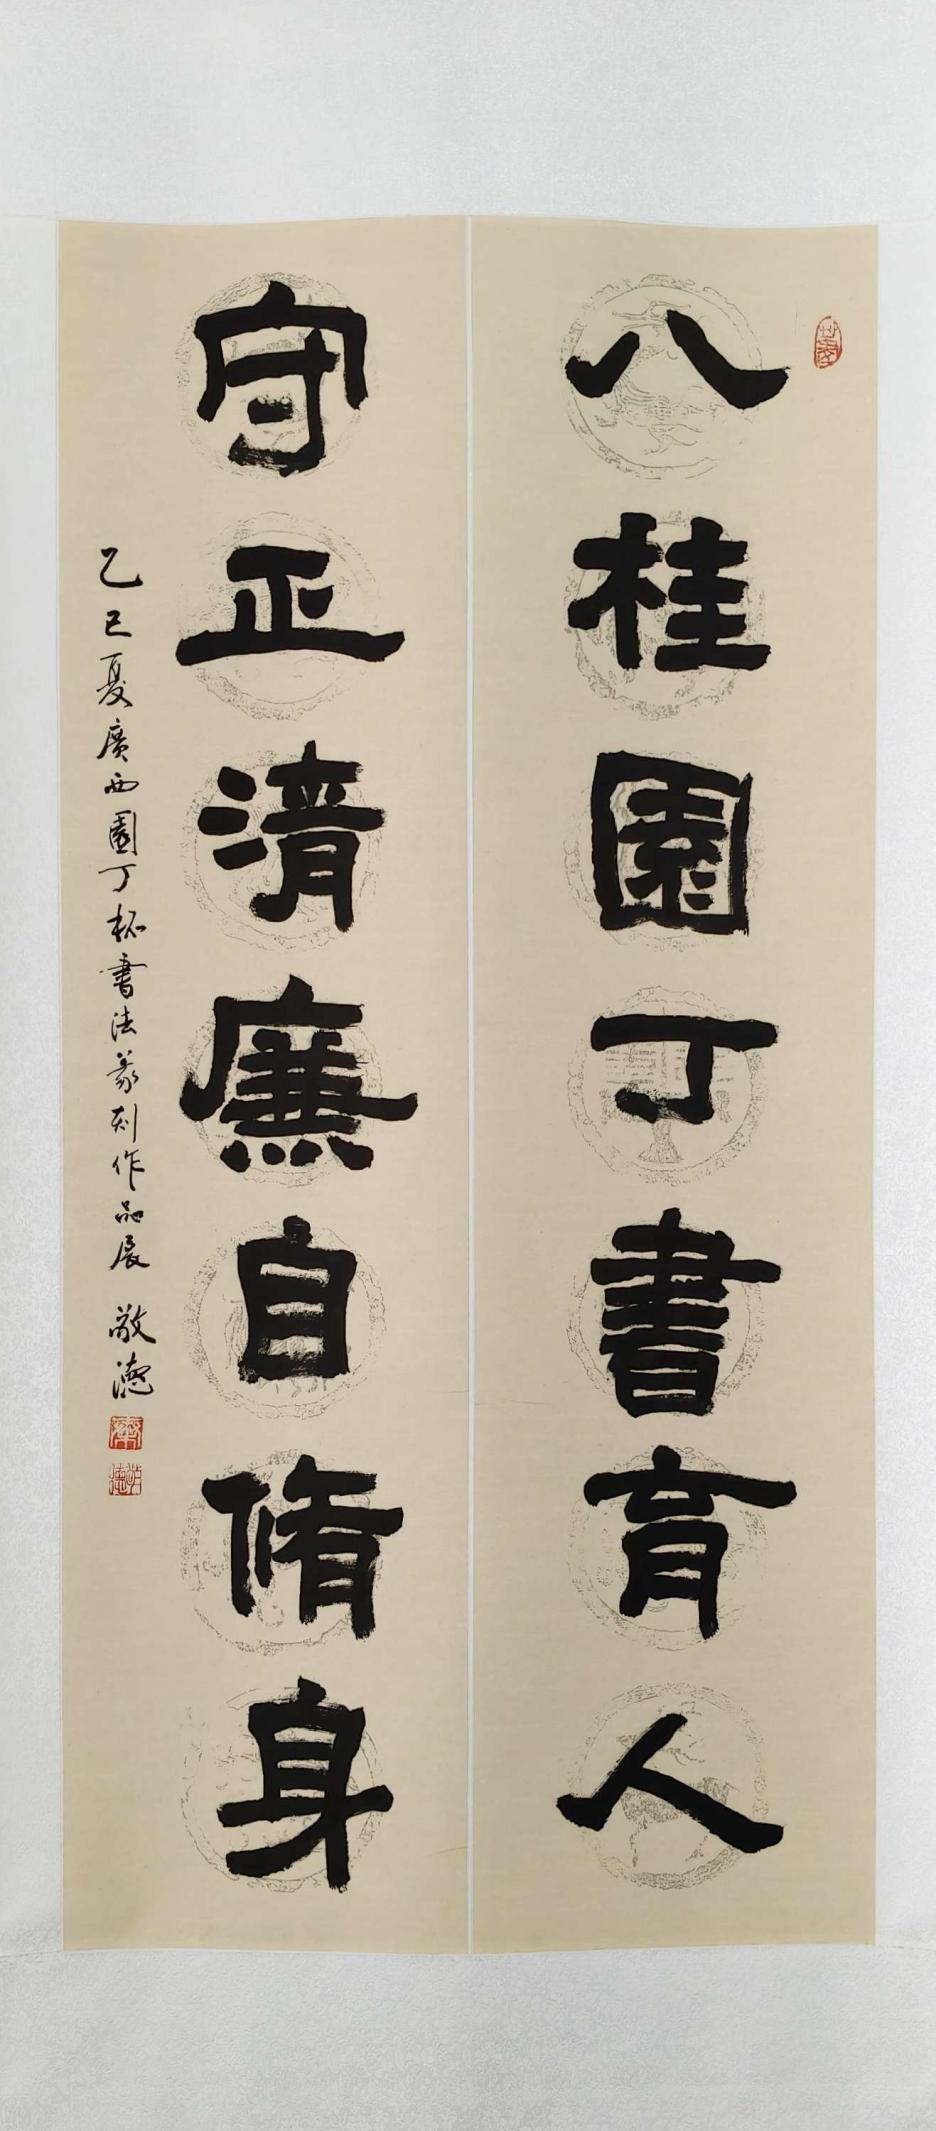 八桂園丁書育人
守正清廉自脩身
乙巳夏廣西園丁杯書法篆刻作品展 敬德